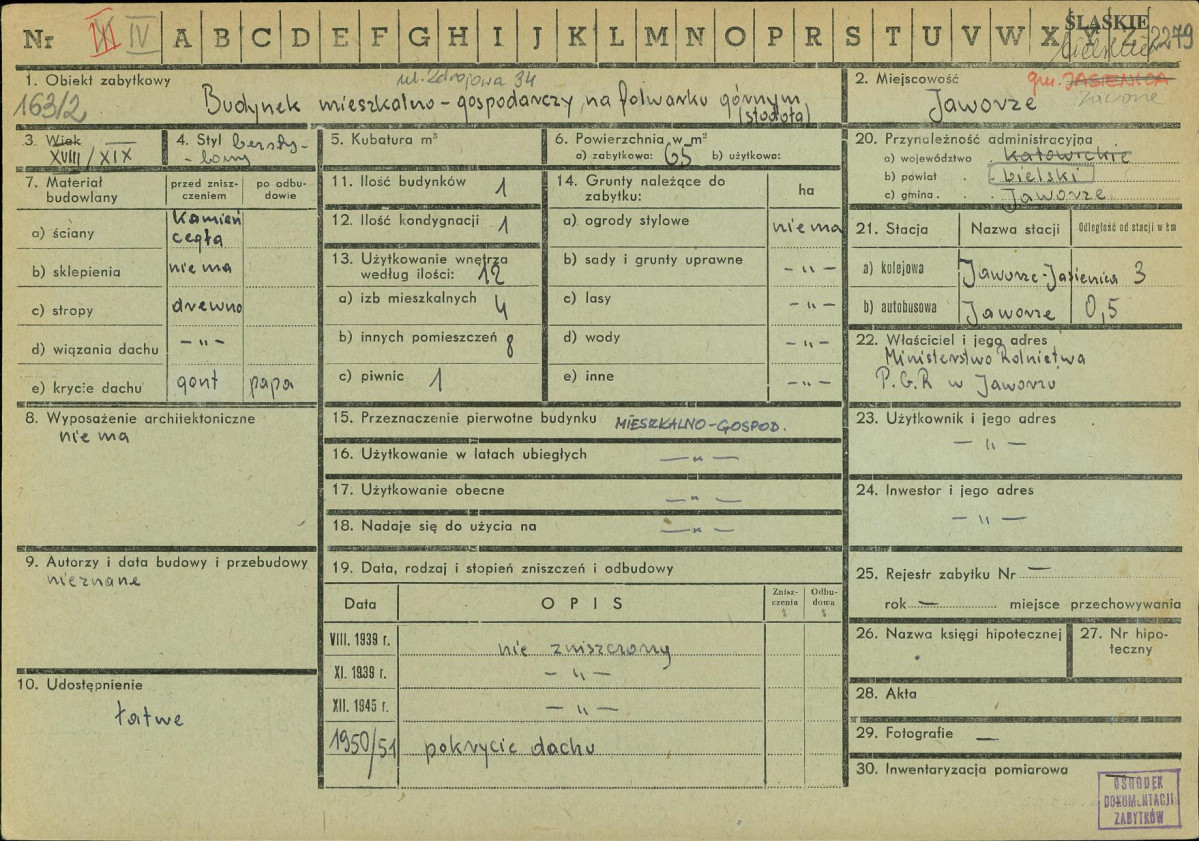 Nr III IV A B C D E F G H I J K L M N O P R S T U V W X Y Z 2279
ŚLĄSKIE
bielskie
1. Obiekt zabytkowy
ul. Zdrojowa 34
163/2
Budynek mieszkalno-gospodarczy na folwarku górnym
(stodoła)
2. Miejscowość
gm. JASIENICA
Jaworze
3. Wiek
XVIII/XIX
4. Styl bezsty-
-lowy
5. Kubatura m³
6. Powierzchnia w m²
a) zabytkowa: 65 b) użytkowa:
7. Materiał budowlany
przed znisz-
czeniem
po odbu-
dowie
a) ściany
Kamień
cegła
b) sklepienia nie ma
c) stropy drewno
d) wiązania dachu -"-
e) krycie dachu gont papa
8. Wyposażenie architektoniczne
nie ma
9. Autorzy i data budowy i przebudowy
nieznane
10. Udostępnienie
łatwe
11. Ilość budynków 1
12. Ilość kondygnacji 1
13. Użytkowanie wnętrza
według ilości: 12
a) izb mieszkalnych 4
b) innych pomieszczeń 8
c) piwnic 1
14. Grunty należące do
zabytku:
ha
a) ogrody stylowe nie ma
b) sady i grunty uprawne -"-
c) lasy -"-
d) wody -"-
e) inne -"-
15. Przeznaczenie pierwotne budynku MIESZKALNO-GOSPOD.
16. Użytkowanie w latach ubiegłych -"-
17. Użytkowanie obecne -"-
18. Nadaje się do użycia na -"-
19. Data, rodzaj i stopień zniszczeń i odbudowy
Data OPIS
Znisz-
czenia
%
Odbu-
dowa
%
VIII. 1939 r. nie zniszczony
XI. 1939 r. -"-
XII. 1945 r. -"-
1950/51 pokrycie dachu
20. Przynależność administracyjna
a) województwo katowickie
b) powiat bielski
c) gmina Jaworze
21. Stacja Nazwa stacji Odległość od stacji w km
a) kolejowa Jaworze-Jasienica 3
b) autobusowa Jaworze 0,5
22. Właściciel i jego adres
Ministerstwo Rolnictwa
P.G.R w Jaworzu
23. Użytkownik i jego adres
-"-
24. Inwestor i jego adres
-"-
25. Rejestr zabytku Nr —
rok — miejsce przechowywania
26. Nazwa księgi hipotecznej
27. Nr hipo-
teczny
28. Akta
29. Fotografie —
30. Inwentaryzacja pomiarowa —
OŚRODEK
DOKUMENTACJI
ZABYTKÓW